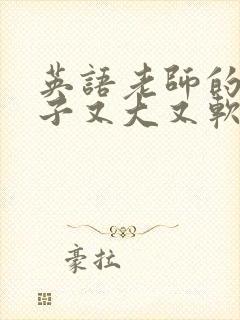 英語老師的
子又大又軟
豪拉